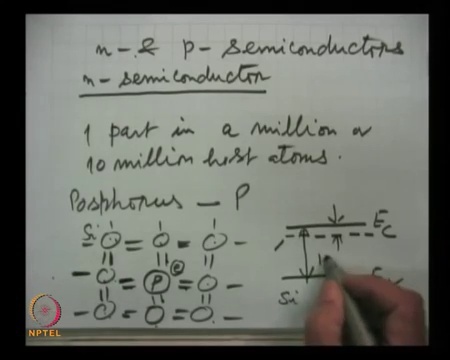 n- & p- semiconductors
n- semiconductor
1 part in a million or
10 million host atoms.
Posphorus - P
Si
P
e
Ec
Si
NPTEL